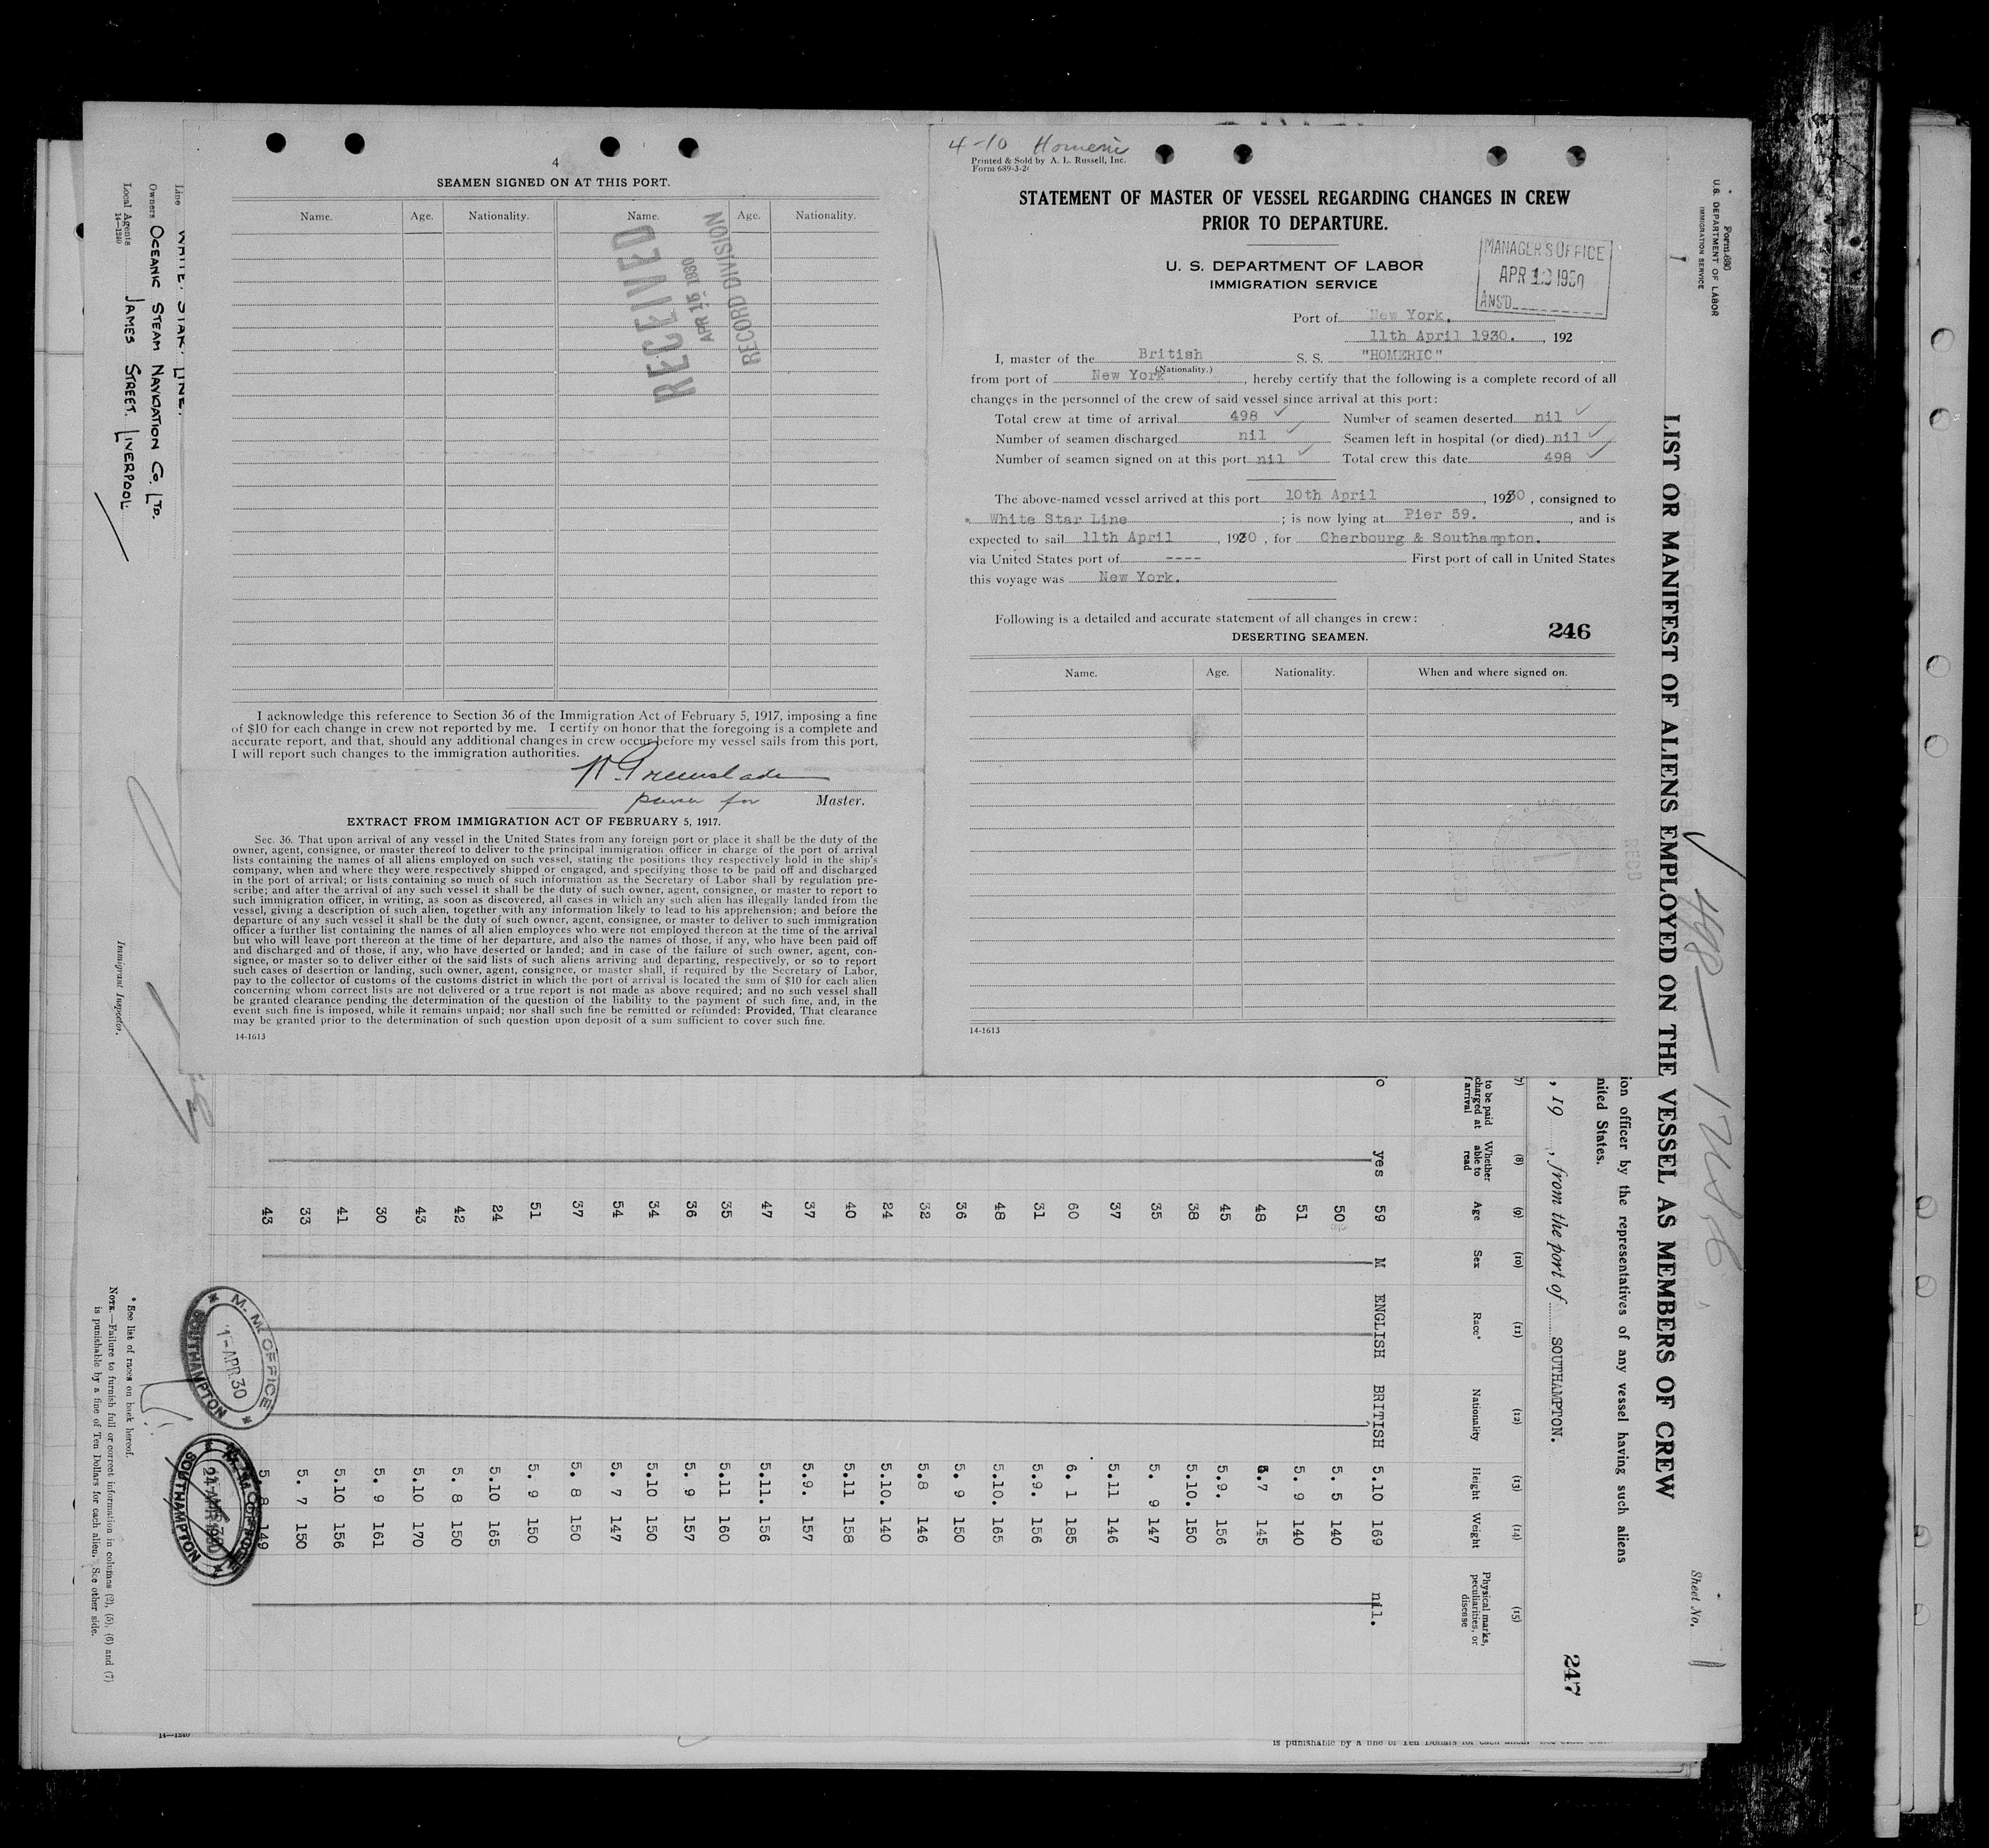 4
SEAMEN SIGNED ON AT THIS PORT.
Name. Age. Nationality. Name. Age. Nationality.
RECEIVED
APR 15 1930
RECORD DIVISION
I acknowledge this reference to Section 36 of the Immigration Act of February 5, 1917, imposing a fine
of $10 for each change in crew not reported by me. I certify on honor that the foregoing is a complete and
accurate report, and that, should any additional changes in crew occur before my vessel sails from this port,
I will report such changes to the immigration authorities.
Greenslade
purser for Master.
EXTRACT FROM IMMIGRATION ACT OF FEBRUARY 5, 1917.
Sec. 36. That upon arrival of any vessel in the United States from any foreign port or place it shall be the duty of the
owner, agent, consignee, or master thereof to deliver to the principal immigration officer in charge of the port of arrival
lists containing the names of all aliens employed on such vessel, stating the positions they respectively hold in the ship's
company, when and where they were respectively shipped or engaged, and specifying those to be paid off and discharged
in the port of arrival; or lists containing so much of such information as the Secretary of Labor shall by regulation pre-
scribe; and after the arrival of any such vessel it shall be the duty of such owner, agent, consignee, or master to report to
such immigration officer, in writing, as soon as discovered, all cases in which any such alien has illegally landed from the
vessel, giving a description of such alien, together with any information likely to lead to his apprehension; and before the
departure of any such vessel it shall be the duty of such owner, agent, consignee, or master to deliver to such immigration
officer a further list containing the names of all alien employees who were not employed thereon at the time of the arrival
but who will leave port thereon at the time of her departure, and also the names of those, if any, who have been paid off
and discharged and of those, if any, who have deserted or landed; and in case of the failure of such owner, agent, con-
signee, or master so to deliver either of the said lists of such aliens arriving and departing, respectively, or so to report
such cases of desertion or landing, such owner, agent, consignee, or master shall, if required by the Secretary of Labor,
pay to the collector of customs of the customs district in which the port of arrival is located the sum of $10 for each alien
concerning whom correct lists are not delivered or a true report is not made as above required; and no such vessel shall
be granted clearance pending the determination of the question of the liability to the payment of such fine, and, in the
event such fine is imposed, while it remains unpaid; nor shall such fine be remitted or refunded: Provided, That clearance
may be granted prior to the determination of such question upon deposit of a sum sufficient to cover such fine.
14-1613
4-10 Homeric
Printed & Sold by A. L. Russell, Inc.
Form 689-3-2
STATEMENT OF MASTER OF VESSEL REGARDING CHANGES IN CREW
PRIOR TO DEPARTURE.
U. S. DEPARTMENT OF LABOR
IMMIGRATION SERVICE
MANAGER'S OFFICE
APR 1930
ANS'D
Port of New York.
11th April 1930. , 192
I, master of the British S. S. "HOMERIC"
(Nationality.)
from port of New York , hereby certify that the following is a complete record of all
changes in the personnel of the crew of said vessel since arrival at this port:
Total crew at time of arrival 498 Number of seamen deserted nil
Number of seamen discharged nil Seamen left in hospital (or died) nil
Number of seamen signed on at this port nil Total crew this date 498
The above-named vessel arrived at this port 10th April , 1930 , consigned to
White Star Line ; is now lying at Pier 59. , and is
expected to sail 11th April , 1930 , for Cherbourg & Southampton.
via United States port of ---- First port of call in United States
this voyage was New York.
Following is a detailed and accurate statement of all changes in crew:
246
DESERTING SEAMEN.
Name. Age. Nationality. When and where signed on.
REC'D
14-1613
Form 680
U. S. DEPARTMENT OF LABOR
IMMIGRATION SERVICE
Sheet No. 1
498
LIST OR MANIFEST OF ALIENS EMPLOYED ON THE VESSEL AS MEMBERS OF CREW
ion officer by the representatives of any vessel having such aliens
nited States.
, 19 , from the port of SOUTHAMPTON.
247
7) (8) (9) (10) (11) (12) (13) (14) (15)
to be paid
charged at
arrival
Whether
able to
read
Age
Sex
Race*
Nationality
Height
Weight
Physical marks,
peculiarities, or
disease
o yes 59 M ENGLISH BRITISH 5.10 169 nil.
50 5. 5 140
51 5. 9 140
48 5.7 145
45 5.9. 156
38 5.10. 150
35 5. 9 147
37 5.11 146
60 6. 1 185
31 5.9. 156
48 5.10. 165
36 5. 9 150
32 5.8 146
24 5.10. 140
40 5.11 158
37 5.9. 157
47 5.11. 156
35 5.11 160
36 5. 9 157
34 5.10 150
54 5. 7 147
37 5. 8 150
51 5. 9 150
24 5.10 165
42 5. 8 150
43 5.10 170
30 5. 9 161
41 5.10 156
33 5. 7 150
43 5. 8 149
M. M. OFFICE
1-APR 30
SOUTHAMPTON
SOUTHAMPTON
Line WHITE STAR LINE.
Owners OCEANIC STEAM NAVIGATION CO. LTD.
Local Agents JAMES STREET. LIVERPOOL
14-1240
Immigrant Inspector.
* See list of races on back hereof.
NOTE.—Failure to furnish full or correct information in columns (2), (5), (6) and (7)
is punishable by a fine of Ten Dollars for each alien. See other side.
14-1240
is punishable by a fine of Ten Dollars for each alien.